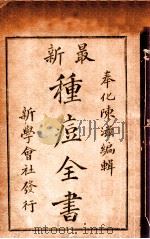 最新
奉化陳滋編輯
種痘全書
新學會社發行
www.du163.com